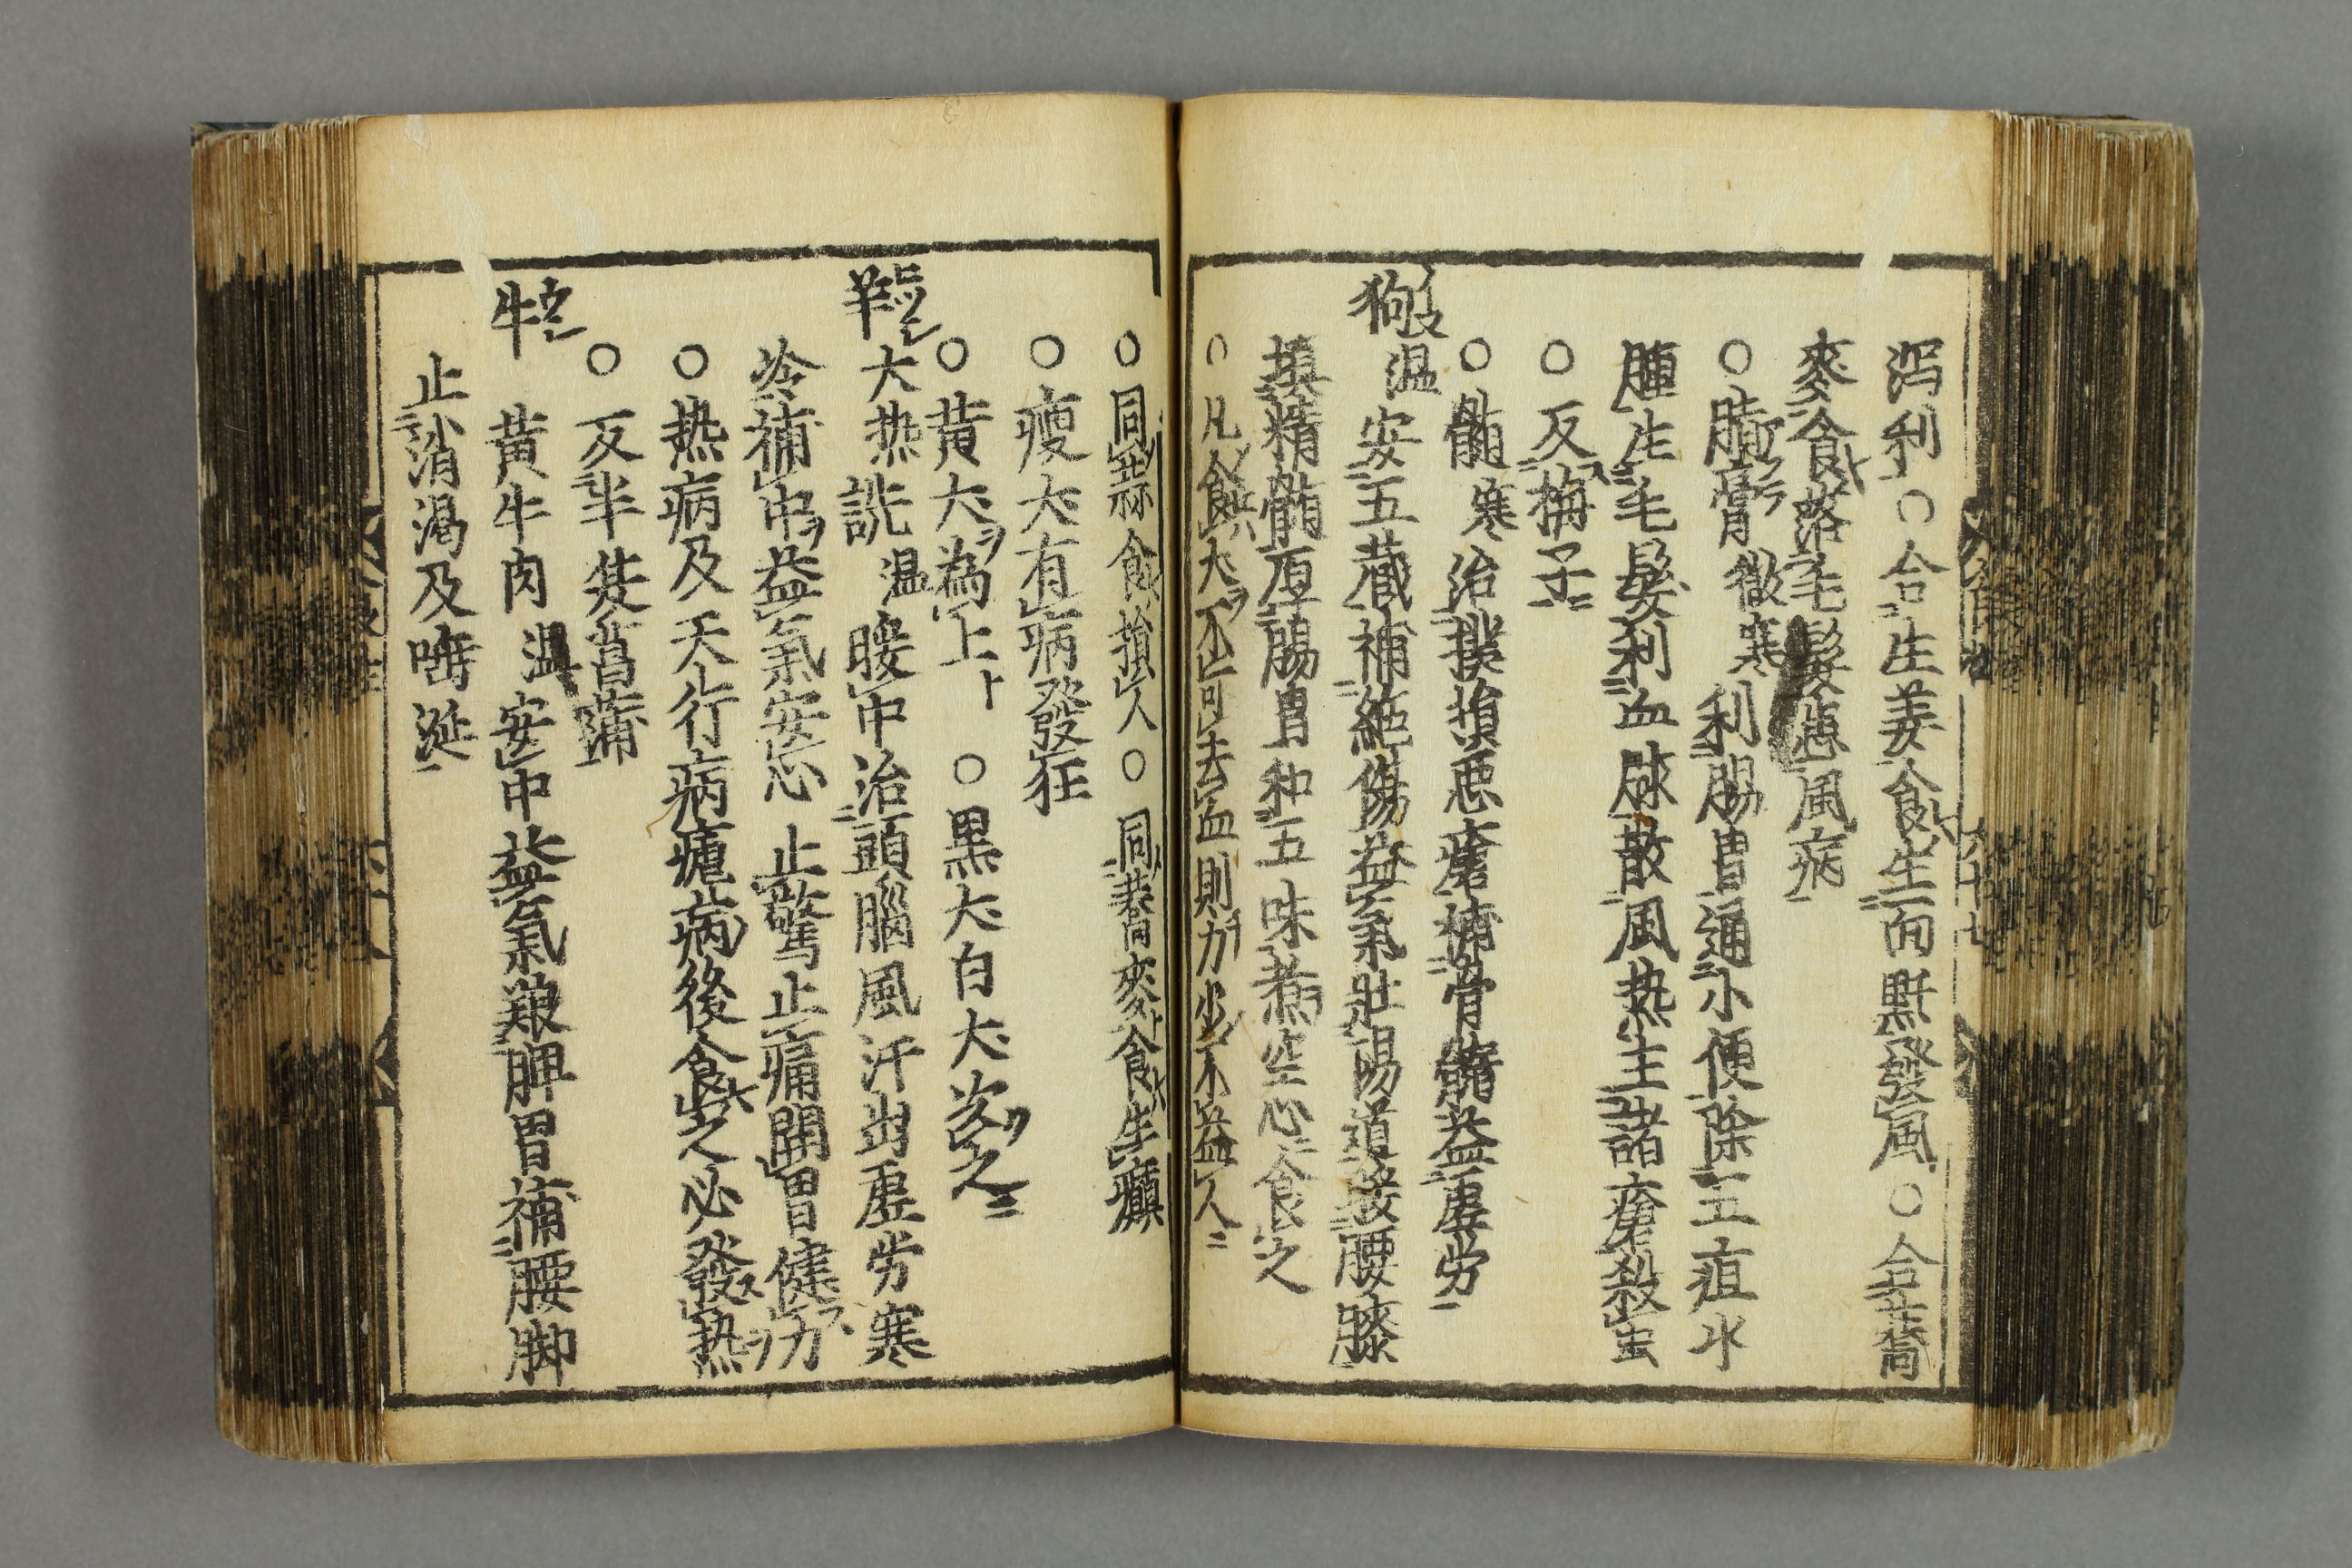 泻利○合生姜食生面䵟發風○合蕎
麥食落毛髮患風病
○肪膏微寒利腸胃通小便除五疸水
腫生毛髮利血脉散風热主諸瘡殺虫
○反梅子
○髓寒治撲損悪瘡補骨髓益虚労
狗温安五蔵補絶傷益氣壮陽道暖腰膝
填精髓厚腸胃和五味煮空心食之
○凡食犬不可去血則力少不益人
○同蒜食損人○同蕎麥食生癲
○瘦犬有病發狂
○黄犬為上○黒犬白犬次之
羊大热詵温暖中治頭腦風汗出虚労寒
冷補中益氣安心止驚止痛開胃健力
○热病及天行病瘧病後食之必發热
○反半䒷菖蒲
牛黄牛肉温安中益氣養脾胃補腰脚
止消渇及唾涎